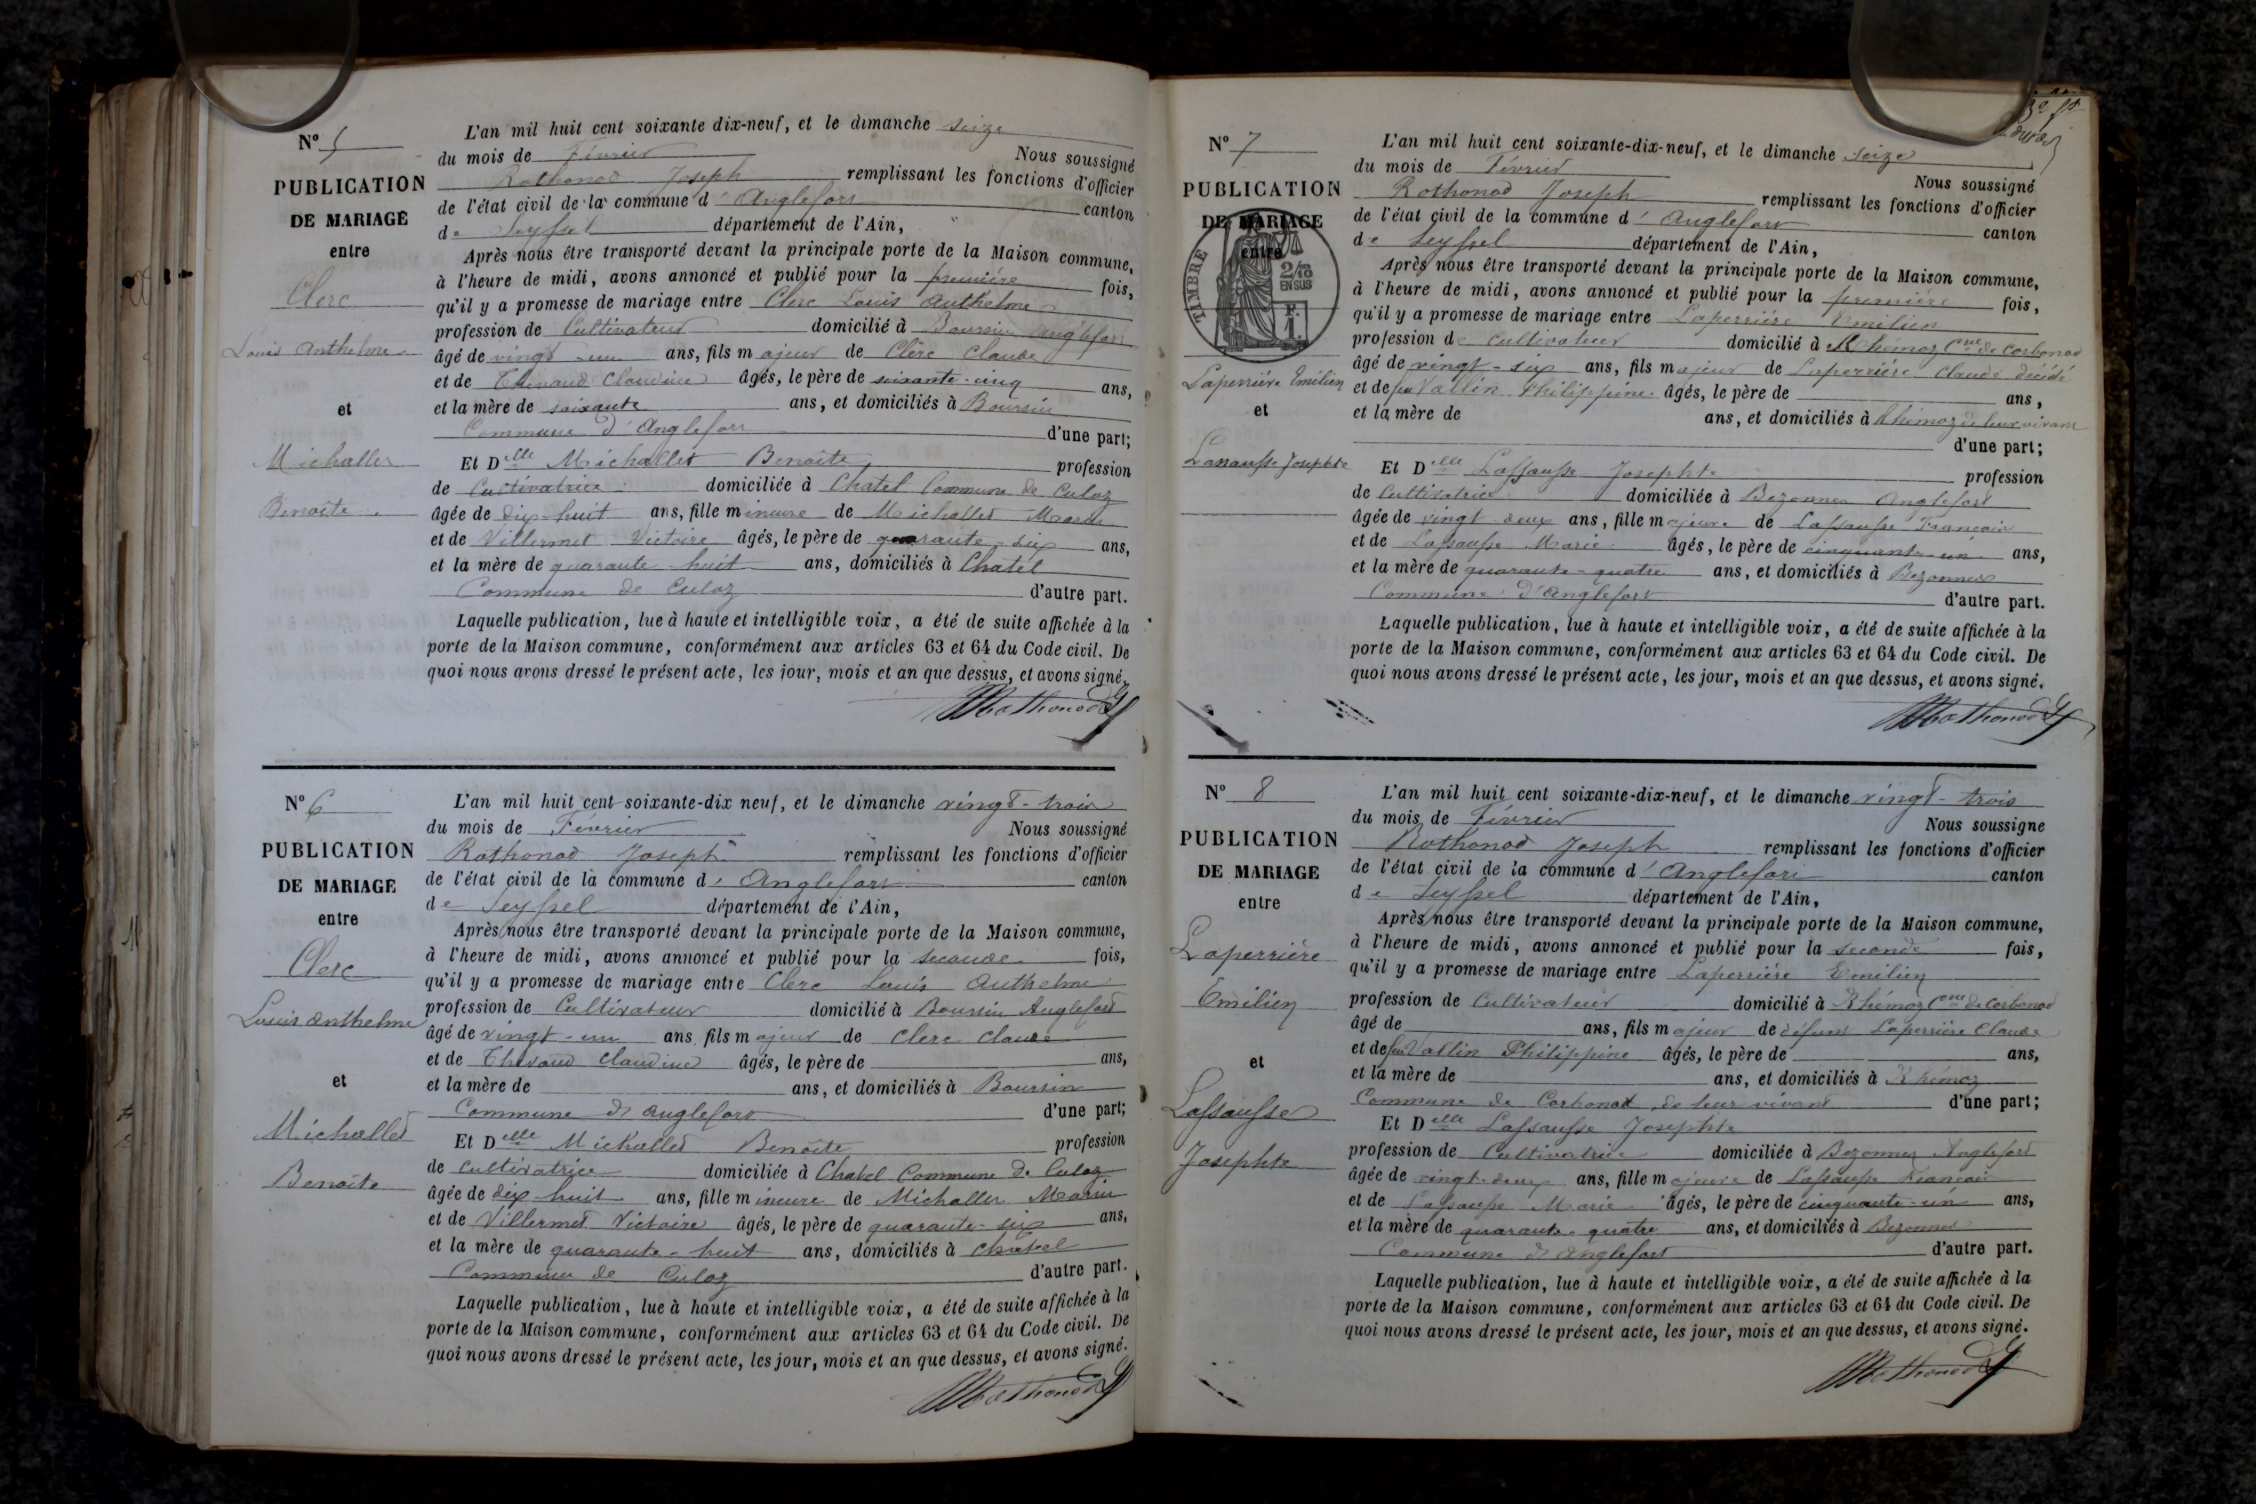 Nº 5
PUBLICATION
DE MARIAGE
entre
Clerc
Louis Anthelme
et
Michallet
Benoîte
L'an mil huit cent soixante dix-neuf, et le dimanche seize
du mois de Février Nous soussigné
Rothonod Joseph remplissant les fonctions d'officier
de l'état civil de la commune d' Anglefort canton
de Seyssel département de l'Ain,
Après nous être transporté devant la principale porte de la Maison commune,
à l'heure de midi, avons annoncé et publié pour la première fois,
qu'il y a promesse de mariage entre Clerc Louis Anthelme
profession de Cultivateur domicilié à Boursin Anglefort
âgé de vingt-un ans, fils majeur de Clerc Claude
et de Thevaud Claudine âgés, le père de soixante-cinq ans,
et la mère de soixante ans, et domiciliés à Boursin
Commune d'Anglefort d'une part;
Et Delle Michallet Benoîte profession
de Cultivatrice domiciliée à Chatel Commune de Culoz
âgée de dix-huit ans, fille mineure de Michallet Marin
et de Villermet Victoire âgés, le père de quarante-six ans,
et la mère de quarante-huit ans, domiciliés à Chatel
Commune de Culoz d'autre part.
Laquelle publication, lue à haute et intelligible voix, a été de suite affichée à la
porte de la Maison commune, conformément aux articles 63 et 64 du Code civil. De
quoi nous avons dressé le présent acte, les jour, mois et an que dessus, et avons signé.
Rothonod J
Nº 6
PUBLICATION
DE MARIAGE
entre
Clerc
Louis Anthelme
et
Michallet
Benoîte
L'an mil huit cent soixante-dix neuf, et le dimanche vingt-trois
du mois de Février Nous soussigné
Rothonod Joseph remplissant les fonctions d'officier
de l'état civil de la commune d' Anglefort canton
de Seyssel département de l'Ain,
Après nous être transporté devant la principale porte de la Maison commune,
à l'heure de midi, avons annoncé et publié pour la seconde fois,
qu'il y a promesse de mariage entre Clerc Louis Anthelme
profession de Cultivateur domicilié à Boursin Anglefort
âgé de vingt-un ans fils majeur de Clerc Claude
et de Thevaud Claudine âgés, le père de ans,
et la mère de ans, et domiciliés à Boursin
Commune d'Anglefort d'une part;
Et Delle Michallet Benoîte profession
de Cultivatrice domiciliée à Chatel Commune de Culoz
âgée de dix-huit ans, fille mineure de Michallet Marin
et de Villermet Victoire âgés, le père de quarante-six ans,
et la mère de quarante-huit ans, domiciliés à Chatel
Commune de Culoz d'autre part.
Laquelle publication, lue à haute et intelligible voix, a été de suite affichée à la
porte de la Maison commune, conformément aux articles 63 et 64 du Code civil. De
quoi nous avons dressé le présent acte, les jour, mois et an que dessus, et avons signé.
Rothonod J
Nº 7
PUBLICATION
DE MARIAGE
entre
TIMBRE
2/10
EN SUS
Laperrière Emilien
et
Lassausse Josephte
L'an mil huit cent soixante-dix-neuf, et le dimanche seize
du mois de Février Nous soussigné
Rothonod Joseph remplissant les fonctions d'officier
de l'état civil de la commune d' Anglefort canton
de Seyssel département de l'Ain,
Après nous être transporté devant la principale porte de la Maison commune,
à l'heure de midi, avons annoncé et publié pour la première fois,
qu'il y a promesse de mariage entre Laperrière Emilien
profession de cultivateur domicilié à Rhémoz Cne de Corbonod
âgé de vingt-six ans, fils majeur de Laperrière Claude décédé
et de feu Vallin Philippine âgés, le père de ans,
et la mère de ans, et domiciliés à Rhémoz de leur vivant
d'une part;
Et Delle Lassausse Josephte profession
de Cultivatrice domiciliée à Bezonnes Anglefort
âgée de vingt-deux ans, fille majeure de Lassausse François
et de Lassausse Marie âgés, le père de cinquante-un ans,
et la mère de quarante-quatre ans, et domiciliés à Bezonnes
Commune d'Anglefort d'autre part.
Laquelle publication, lue à haute et intelligible voix, a été de suite affichée à la
porte de la Maison commune, conformément aux articles 63 et 64 du Code civil. De
quoi nous avons dressé le présent acte, les jour, mois et an que dessus, et avons signé.
Rothonod J
Nº 8
PUBLICATION
DE MARIAGE
entre
Laperrière
Emilien
et
Lassausse
Josephte
L'an mil huit cent soixante-dix-neuf, et le dimanche vingt-trois
du mois de Février Nous soussigné
Rothonod Joseph remplissant les fonctions d'officier
de l'état civil de la commune d' Anglefort canton
de Seyssel département de l'Ain,
Après nous être transporté devant la principale porte de la Maison commune,
à l'heure de midi, avons annoncé et publié pour la seconde fois,
qu'il y a promesse de mariage entre Laperrière Emilien
profession de Cultivateur domicilié à Rhémoz Cne de Corbonod
âgé de ans, fils majeur de défunt Laperrière Claude
et de feu Vallin Philippine âgés, le père de ans,
et la mère de ans, et domiciliés à Rhémoz
Commune de Corbonod de leur vivant d'une part;
Et Delle Lassausse Josephte
profession de Cultivatrice domiciliée à Bezonnes Anglefort
âgée de vingt-deux ans, fille majeure de Lassausse François
et de Lassausse Marie âgés, le père de cinquante-un ans,
et la mère de quarante-quatre ans, et domiciliés à Bezonnes
Commune d'Anglefort d'autre part.
Laquelle publication, lue à haute et intelligible voix, a été de suite affichée à la
porte de la Maison commune, conformément aux articles 63 et 64 du Code civil. De
quoi nous avons dressé le présent acte, les jour, mois et an que dessus, et avons signé.
Rothonod J